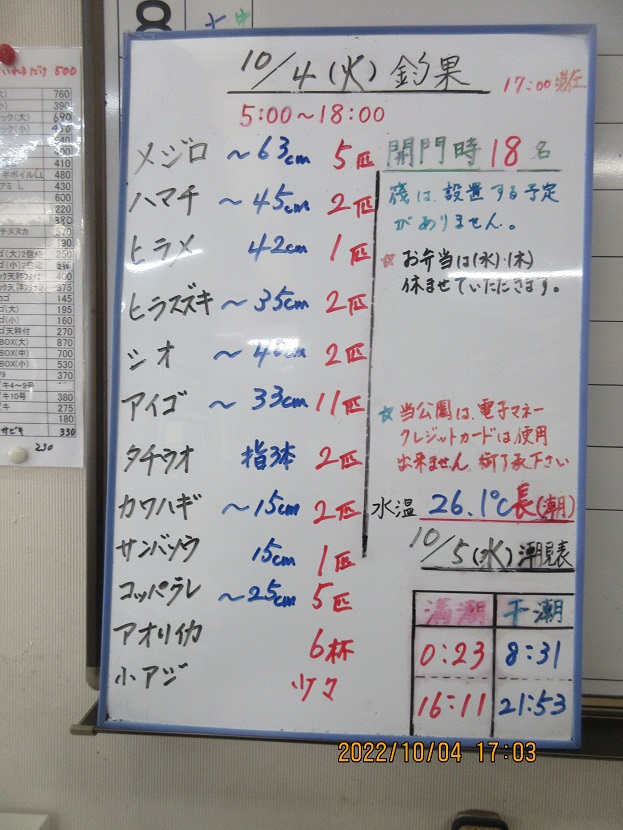 10/4(火) 釣果
17:00現在
5:00〜18:00
メジロ 〜63cm 5匹
ハマチ 〜45cm 2匹
ヒラメ 42cm 1匹
ヒラスズキ 〜35cm 2匹
シオ 〜40cm 2匹
アイゴ 〜33cm 11匹
タチウオ 指3本 2匹
カワハギ 〜15cm 2匹
サンバソウ 15cm 1匹
コッパグレ 〜25cm 5匹
アオリイカ 6杯
小アジ 少々
開門時18名
筏は、設置する予定
がありません。
☆お弁当は(水)・(木)
休ませていただきます。
☆当公園は、電子マネー
クレジットカードは使用
出来ません 御了承下さい
水温 26.1℃ 長(潮)
10/5(水)潮見表
満潮 干潮
0:23 8:31
16:11 21:53
2022/10/04 17:03
500
760
390
690
410
480
430
600
220
380
570
145
195
160
270
870
700
530
370
380
275
180
サビキ 330
230